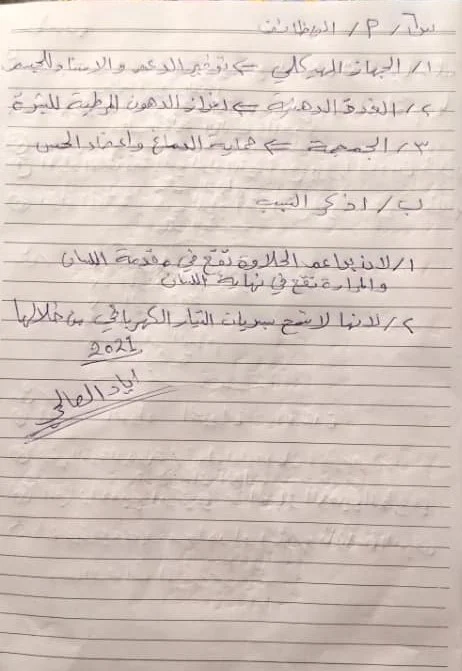 س٦/ P/ الوظائف
١/ الجهاز الهيكلي ← توفير الدعم والاسناد للجسم
٢/ الغدة الدهنية ← افراز الدهون المرطبة للبشرة
٣/ الجمجمة ← حماية الدماغ واعضاء الحس
ب/ اذكر السبب
١/ لان براعم الحلاوة تقع في مقدمة اللسان
والمرارة تقع في نهاية اللسان
٢/ لانها لا تسمح بسريان التيار الكهربائي من خلالها
2021
اياد الصالحي